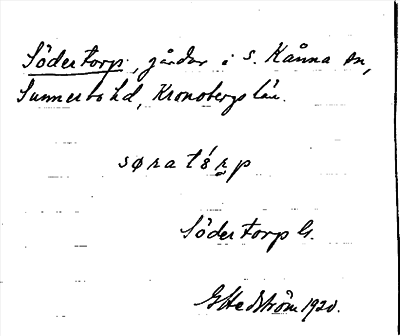 Södertorp, gårdar i s. Kånna sn,
Sunnerbo hd, Kronobergs län.
søratórp
Södertorp G.
G Hedström 1920.